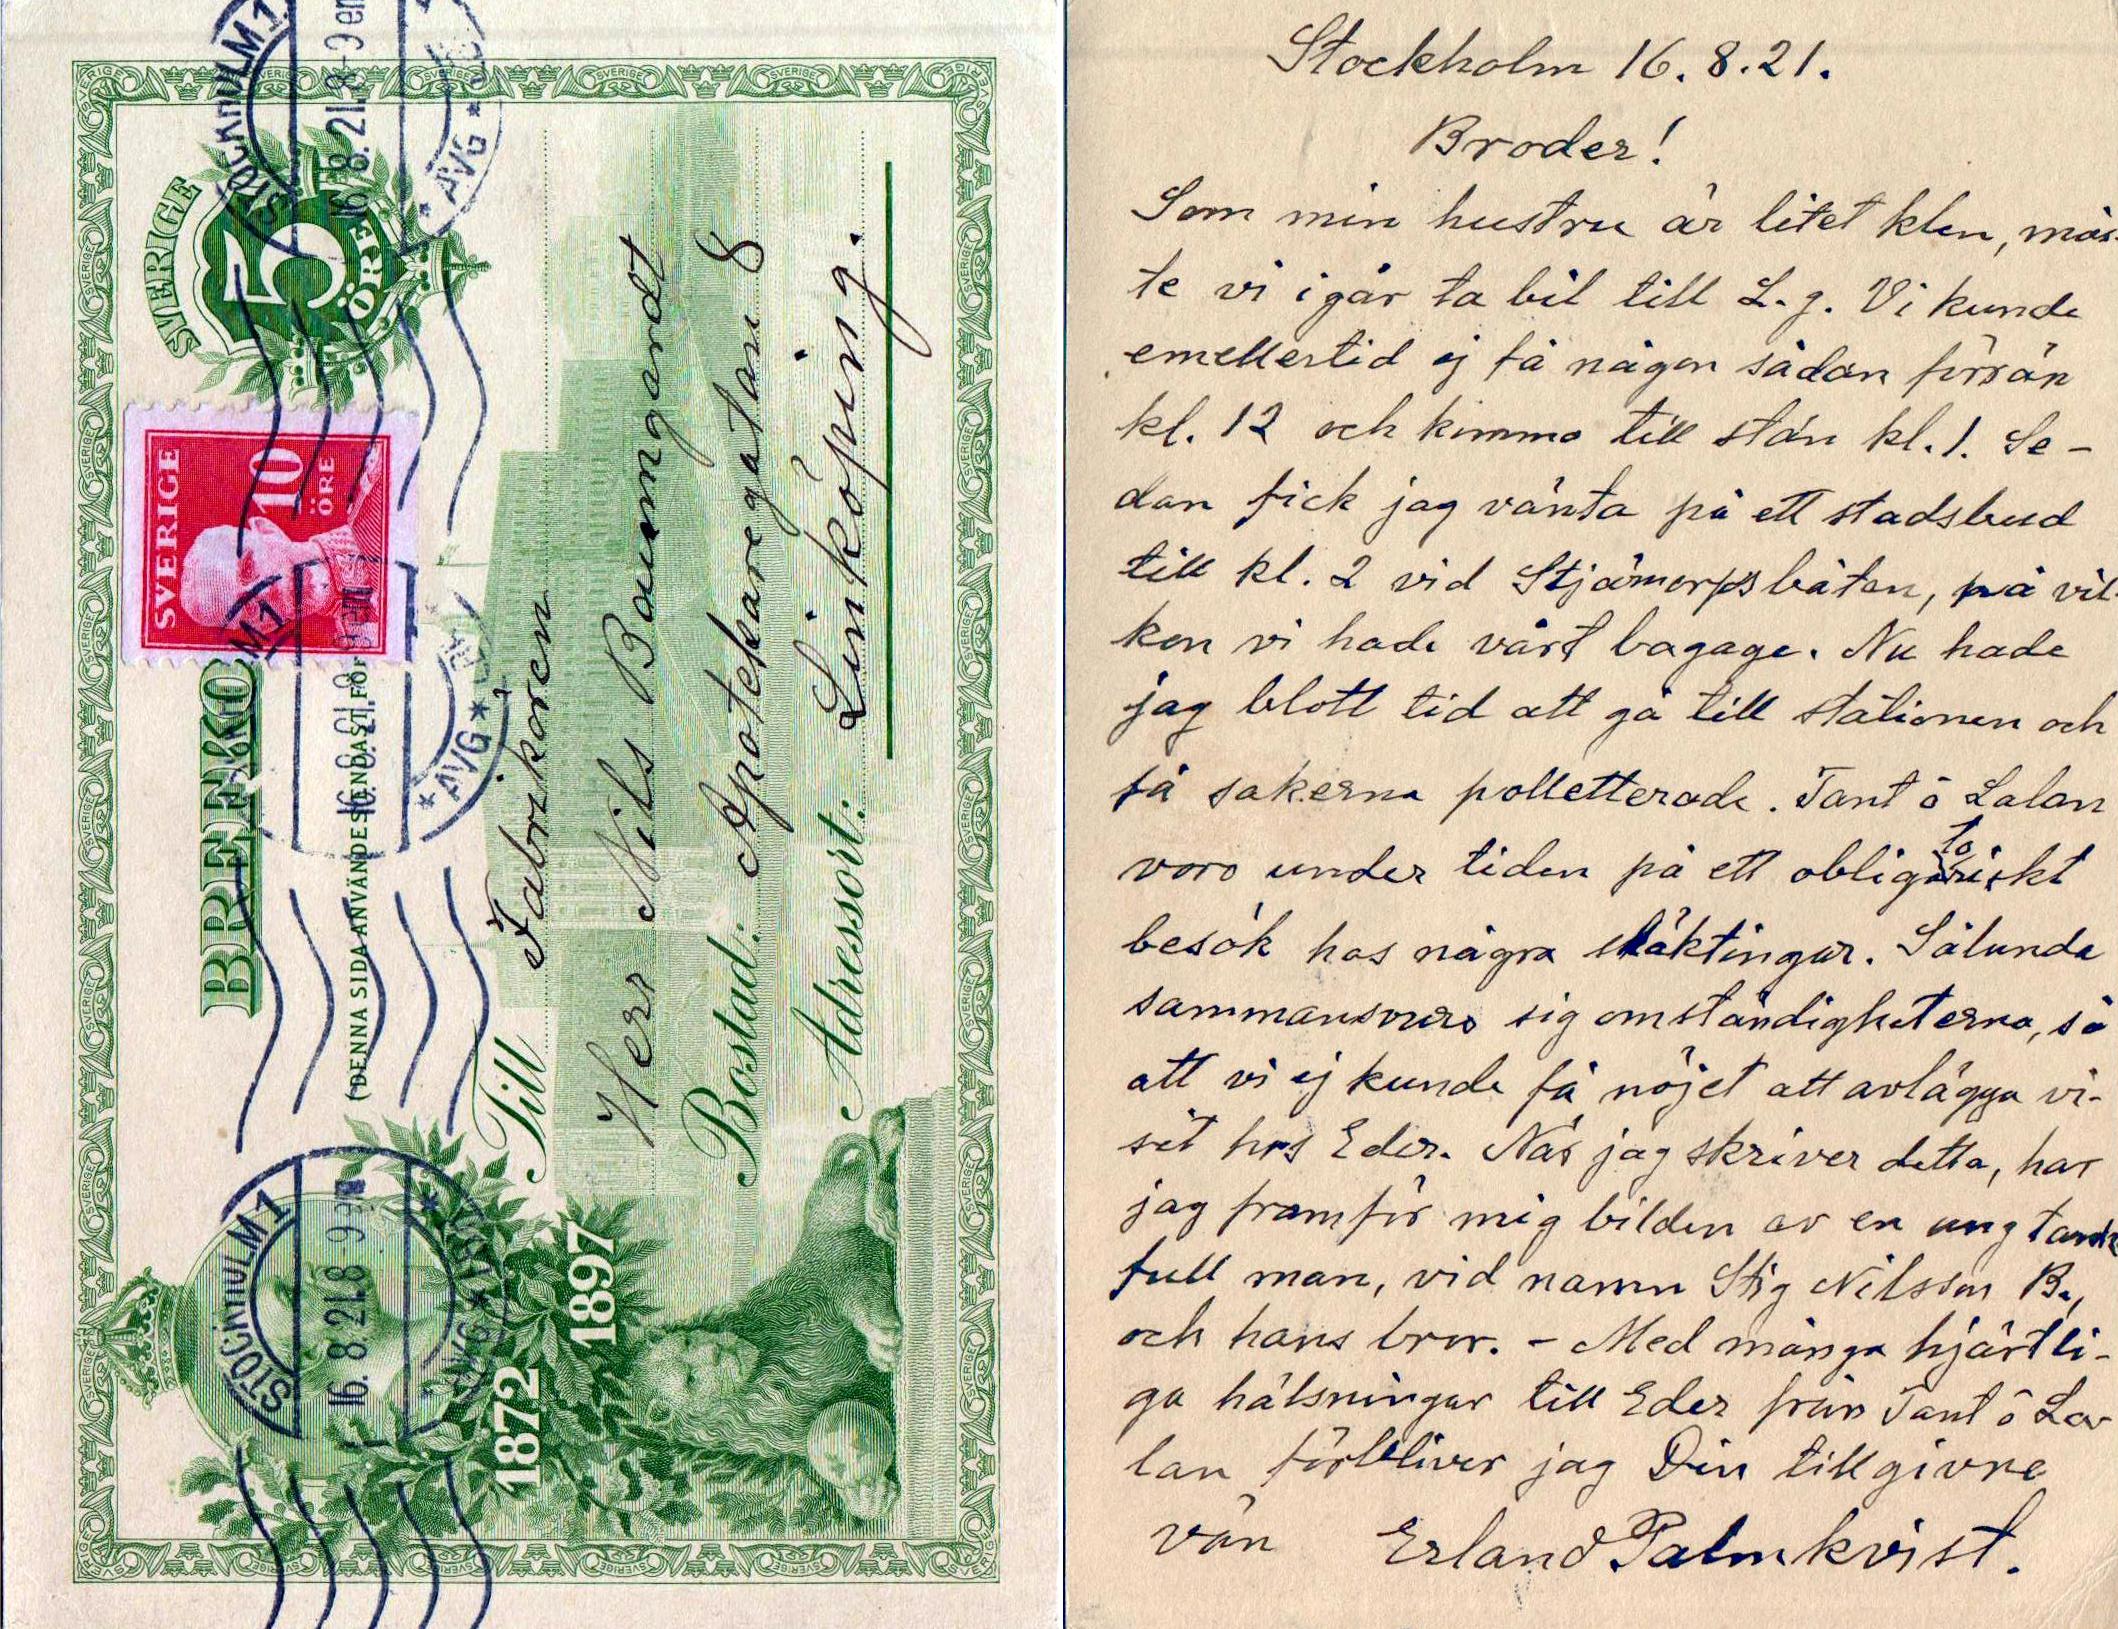 SVERIGE
5
ÖRE
SVERIGE
10
ÖRE
BREFKORT
(DENNA SIDA ANVÄNDES ENDAST FÖR
STOCKHOLM 1
16.8.21.8-9 em
* AVG *
STOCKHOLM 1
16.8.21.8-9 em
* AVG *
STOCKHOLM 1
16.8.21.8-9 em
* AVG *
1872 1897
Till Fabrikören
Herr Nils Baumgardt
Bostad: Apotekaregatan 8
Adressort: Linköping.
Stockholm 16.8.21.
Broder!
Som min hustru är litet klen, mås-
te vi igår ta bil till L-g. Vi kunde
emellertid ej få någon sådan förrän
kl. 12 och kommo till stán kl. 1. Se-
dan fick jag vänta på ett stadsbud
till kl. 2 vid Stjämorpsbåten, på vil-
ken vi hade vårt bagage. Nu hade
jag blott tid att gå till stationen och
få sakerna polletterade. Tant o Lalan
voro under tiden på ett obligatoriskt
besök hos några släktingar. Sålunda
sammansvuro sig omständigheterna, så
att vi ej kunde få nöjet att avlägga vi-
sit hos Eder. När jag skriver detta, har
jag framför mig bilden av en ung tank-
full man, vid namn Stig Nilsson B.,
och hans bror. - Med många hjärtli-
ga hälsningar till Eder från Tant o La-
lan förbliver jag Din tillgivne
vän Erland Palmkvist.